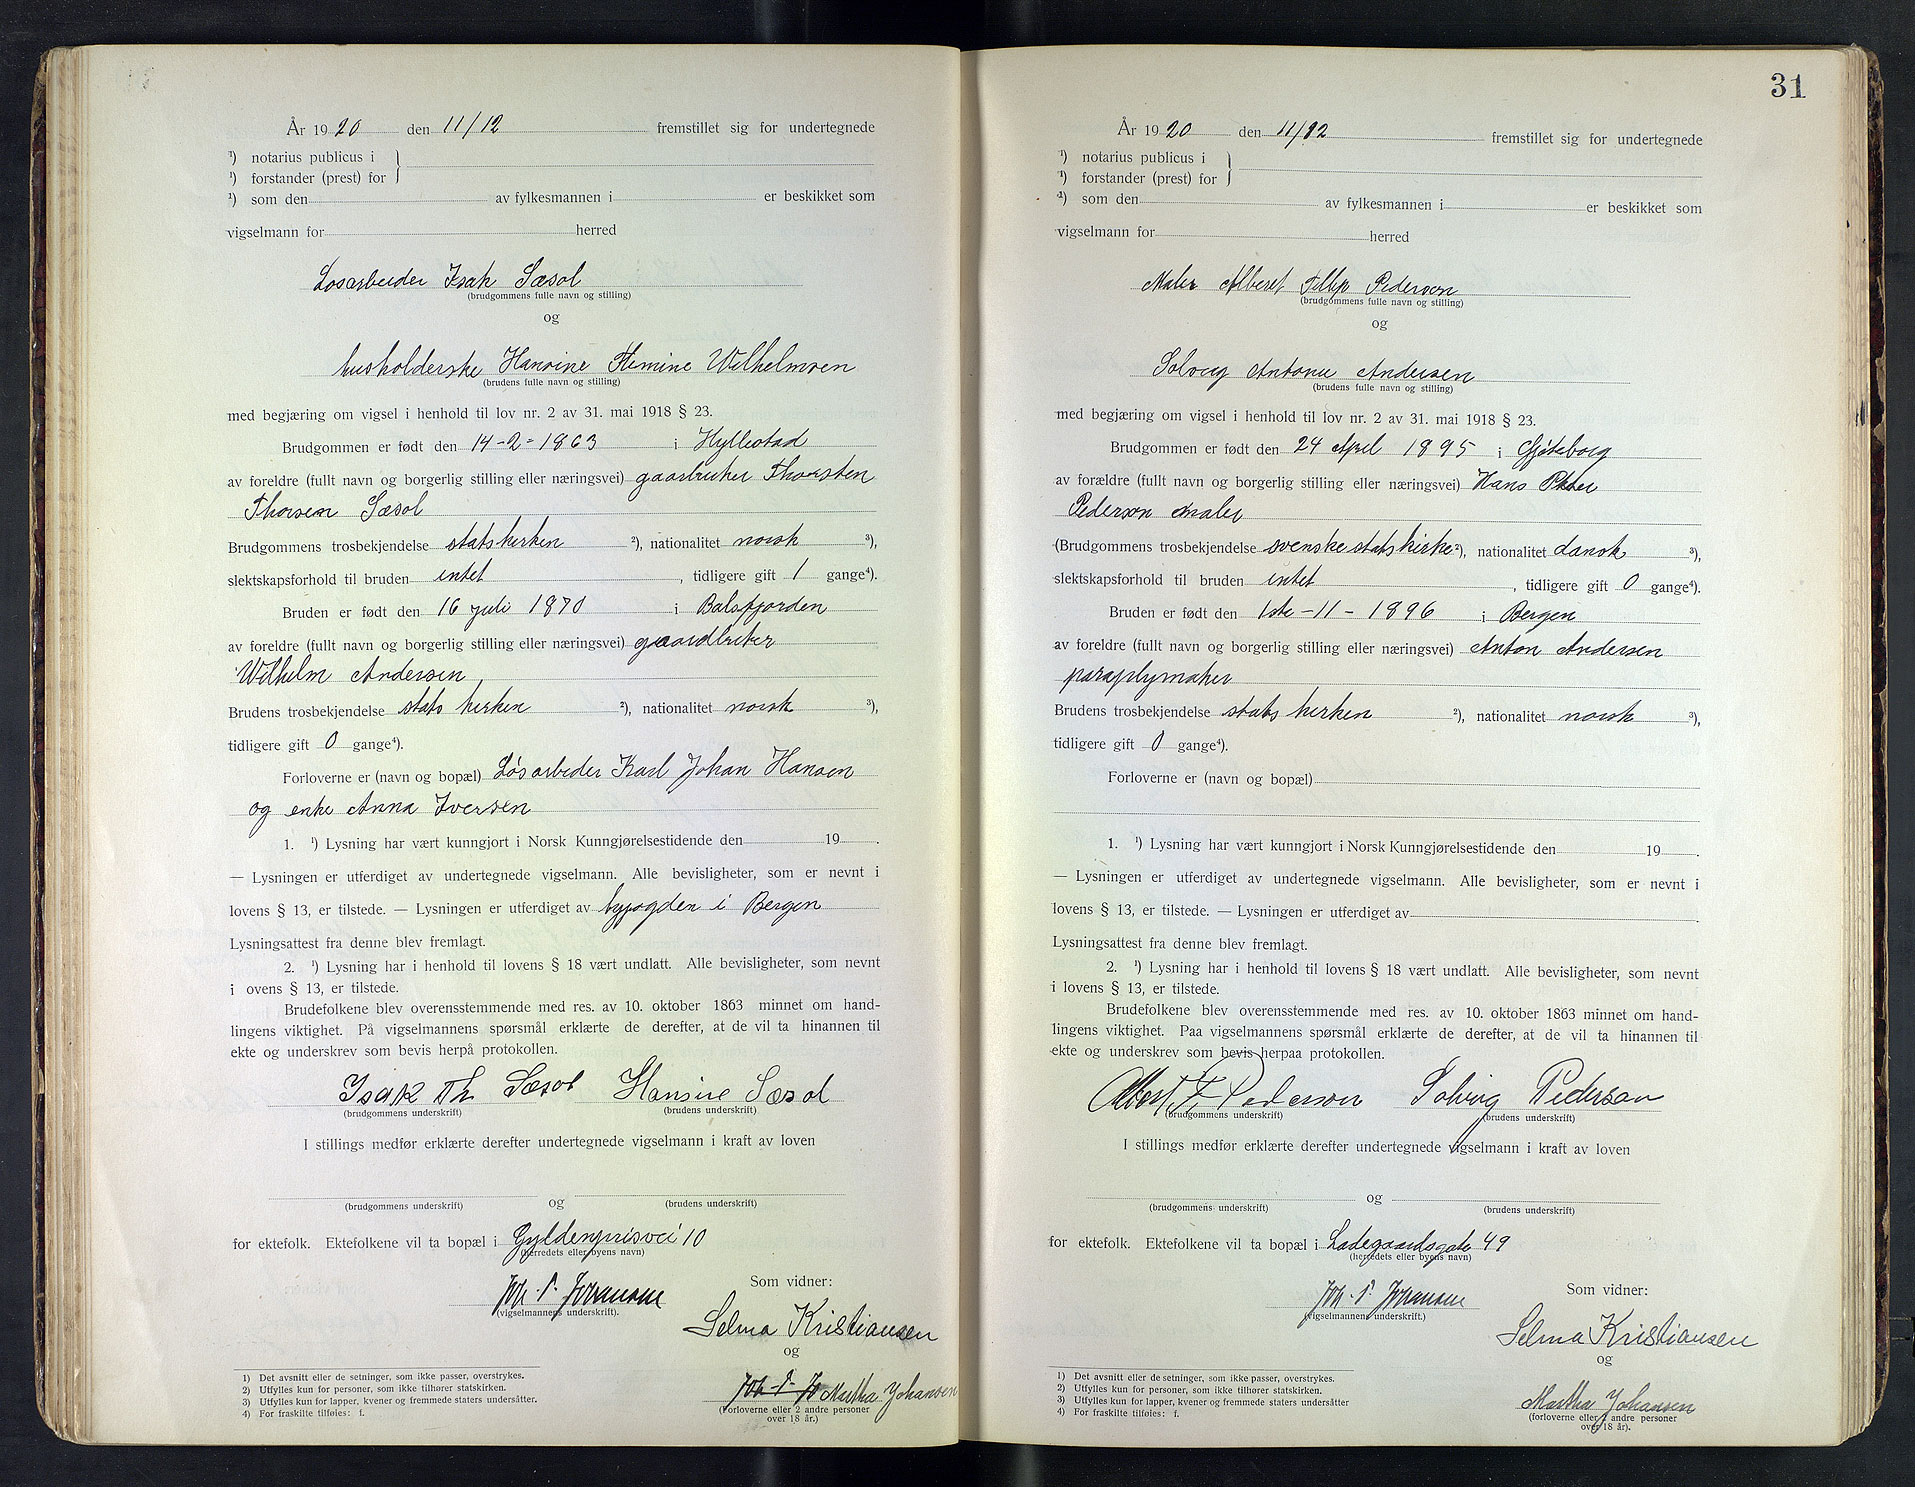 År 1920 den 11/12 fremstillet sig for undertegnede
¹) notarius publicus i
¹) forstander (prest) for
¹) som den av fylkesmannen i er beskikket som
vigselmann for herred
Løsarbeider Isak Sæsol
(brudgommens fulle navn og stilling)
og
husholderske Hansine Stemine Wilhelmsen
(brudens fulle navn og stilling)
med begjæring om vigsel i henhold til lov nr. 2 av 31. mai 1918 § 23.
Brudgommen er født den 14-2-1863 i Hyllestad
av foreldre (fullt navn og borgerlig stilling eller næringsvei) gaarbruker Thorsten
Thorsen Sæsol
Brudgommens trosbekjendelse statskirken ²), nationalitet norsk ³),
slektskapsforhold til bruden intet, tidligere gift 1 gange⁴).
Bruden er født den 16 juli 1870 i Balsfjorden
av foreldre (fullt navn og borgerlig stilling eller næringsvei) gaardbruker
Wilhelm Andersen
Brudens trosbekjendelse stats kirken ²), nationalitet norsk ³),
tidligere gift 0 gange⁴).
Forloverne er (navn og bopæl) Løsarbeder Karl Johan Hansen
og enke Anna Iversen
1. ¹) Lysning har vært kunngjort i Norsk Kunngjørelsestidende den 19 .
— Lysningen er utferdiget av undertegnede vigselmann. Alle bevisligheter, som er nevnt i
lovens § 13, er tilstede. — Lysningen er utferdiget av byfogden i Bergen
Lysningsattest fra denne blev fremlagt.
2. ¹) Lysning har i henhold til lovens § 18 vært undlatt. Alle bevisligheter, som nevnt
i ovens § 13, er tilstede.
Brudefolkene blev overensstemmende med res. av 10. oktober 1863 minnet om hand-
lingens viktighet. På vigselmannens spørsmål erklærte de derefter, at de vil ta hinannen til
ekte og underskrev som bevis herpå protokollen.
Isak Th Sæsol Hansine Sæsol
(brudgommens underskrift) (brudens underskrift)
I stillings medfør erklærte derefter undertegnede vigselmann i kraft av loven
og
(brudgommens underskrift) (brudens underskrift)
for ektefolk. Ektefolkene vil ta bopæl i Gyldenprisvei 10
(herredets eller byens navn)
Joh. P. Johansen Som vidner:
(vigselmannens underskrift).
Selma Kristiansen
og
Joh. P. Jo Martha Johansen
(Forloverne eller 2 andre personer
over 18 år.)
1) Det avsnitt eller de setninger, som ikke passer, overstrykes.
2) Utfylles kun for personer, som ikke tilhører statskirken.
3) Utfylles kun for lapper, kvener og fremmede staters undersåtter.
4) For fraskilte tilføles: f.
31
År 1920 den 11/12 fremstillet sig for undertegnede
¹) notarius publicus i
¹) forstander (prest) for
¹) som den av fylkesmannen i er beskikket som
vigselmann for herred
Maler Alberet Fillip Pedersen
(brudgommens fulle navn og stilling)
og
Solveig Antonie Andersen
(brudens fulle navn og stilling)
med begjæring om vigsel i henhold til lov nr. 2 av 31. mai 1918 § 23.
Brudgommen er født den 24 April 1895 i Gjøteborg
av forældre (fullt navn og borgerlig stilling eller næringsvei) Hans Peter
Pederson maler
(Brudgommens trosbekjendelse svenske statskirke ²), nationalitet dansk ³),
slektskapsforhold til bruden intet, tidligere gift 0 gange⁴).
Bruden er født den 1ste-11-1896 i Bergen
av foreldre (fullt navn og borgerlig stilling eller næringsvei) Anton Andersen
paraplymaker
Brudens trosbekjendelse stats kirken ²), nationalitet norsk ³),
tidligere gift 0 gange⁴).
Forloverne er (navn og bopæl)
1. ¹) Lysning har vært kunngjort i Norsk Kunngjørelsestidende den 19 .
— Lysningen er utferdiget av undertegnede vigselmann. Alle bevisligheter, som er nevnt i
lovens § 13, er tilstede. — Lysningen er utferdiget av .
Lysningsattest fra denne blev fremlagt.
2. ¹) Lysning har i henhold til lovens § 18 vært undlatt. Alle bevisligheter, som nevnt
i lovens § 13, er tilstede.
Brudefolkene blev overensstemmende med res. av 10. oktober 1863 minnet om hand-
lingens viktighet. Paa vigselmannens spørsmål erklærte de derefter, at de vil ta hinannen til
ekte og underskrev som bevis herpaa protokollen.
Albert F. Pederson Solvieg Pederson
(brudgommens underskrift) (brudens underskrift)
I stillings medfør erklærte derefter undertegnede vigselmann i kraft av loven
og
(brudgommens underskrift) (brudens underskrift)
for ektefolk. Ektefolkene vil ta bopæl i Ladegaardsgate 49
(herredets eller byens navn)
Joh. P. Johansen Som vidner:
(vigselmannens underskrift.)
Selma Kristiansen
og
Martha Johansen
(forloverne eller 2 andre personer
over 18 år).
1) Det avsnitt eller de setninger, som ikke passer, overstrykes.
2) Utfylles kun for personer, som ikke tilhører statskirken.
3) Utfylles kun for lapper, kvener og fremmede staters undersåtter
4) For fraskilte tilføles: f.